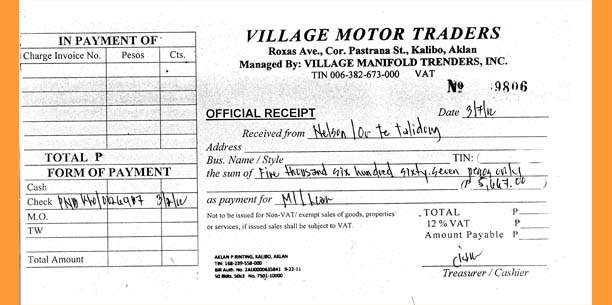 IN PAYMENT OF
Charge Invoice No. Pesos Cts.
TOTAL P
FORM OF PAYMENT
Cash
Check PNB 3/7/12
M.O.
TW
Total Amount
VILLAGE MOTOR TRADERS
Roxas Ave., Cor. Pastrana St., Kalibo, Aklan
Managed By: VILLAGE MANIFOLD TRENDERS, INC.
TIN 006-382-673-000 VAT
№ 9806
OFFICIAL RECEIPT Date 3/7/12
Received from Nelson
Address
Bus. Name / Style TIN: (
the sum of Five thousand six hundred sixty-seven pesos only
(P 5,667.00)
as payment for
Not to be issued for Non-VAT/ exempt sales of goods, properties
or services; if issued sales shall be subject to VAT.
TOTAL P
12 % VAT P
Amount Payable P
AKLAN P RINTING, KALIBO, AKLAN
TIN: 168-239-558-000
BIR Auth. No. 2AU0000635841 9-22-11
50 Bklts. 50x3 No. 7501-10000
Treasurer / Cashier